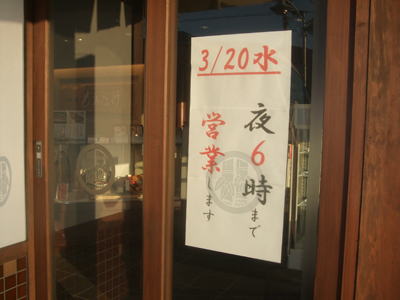 3/20水
夜6時まで
営業します